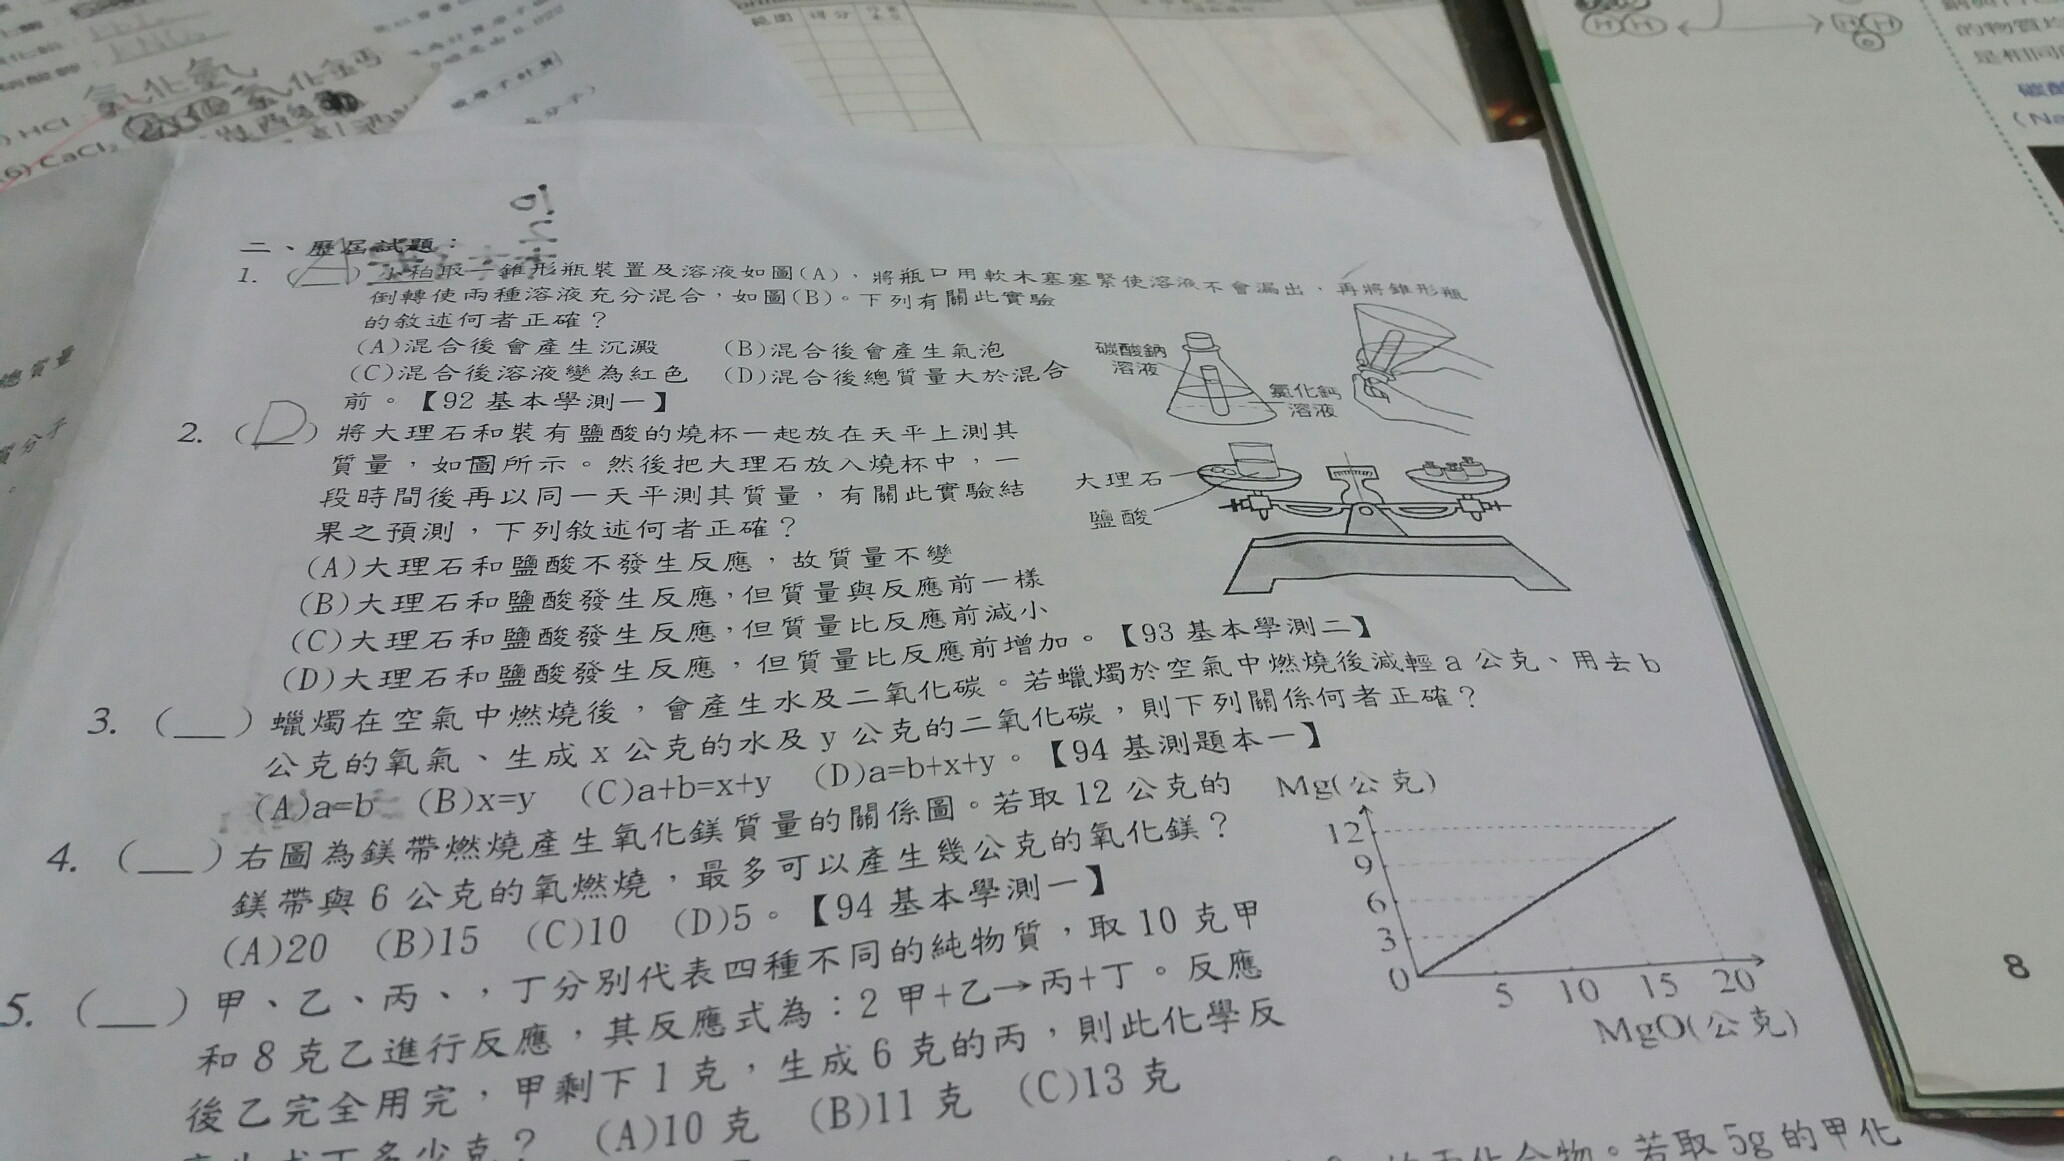 氯化氫
HCl
CaCl₂
氯化鈣
範圍 得分
二、歷屆試題：
1. (A) 小柏取一錐形瓶裝置及溶液如圖(A)，將瓶口用軟木塞塞緊使溶液不會漏出，再將錐形瓶
倒轉使兩種溶液充分混合，如圖(B)。下列有關此實驗
的敘述何者正確？
(A)混合後會產生沉澱 (B)混合後會產生氣泡
(C)混合後溶液變為紅色 (D)混合後總質量大於混合
前。【92 基本學測一】
碳酸鈉
溶液
氯化鈣
溶液
2. (D) 將大理石和裝有鹽酸的燒杯一起放在天平上測其
質量，如圖所示。然後把大理石放入燒杯中，一
段時間後再以同一天平測其質量，有關此實驗結
果之預測，下列敘述何者正確？
(A)大理石和鹽酸不發生反應，故質量不變
(B)大理石和鹽酸發生反應，但質量與反應前一樣
(C)大理石和鹽酸發生反應，但質量比反應前減小
(D)大理石和鹽酸發生反應，但質量比反應前增加。【93 基本學測二】
大理石
鹽酸
3. (__) 蠟燭在空氣中燃燒後，會產生水及二氧化碳。若蠟燭於空氣中燃燒後減輕 a 公克、用去 b
公克的氧氣、生成 x 公克的水及 y 公克的二氧化碳，則下列關係何者正確？
(A)a=b (B)x=y (C)a+b=x+y (D)a=b+x+y。【94 基測題本一】
4. (__) 右圖為鎂帶燃燒產生氧化鎂質量的關係圖。若取 12 公克的
鎂帶與 6 公克的氧燃燒，最多可以產生幾公克的氧化鎂？
(A)20 (B)15 (C)10 (D)5。【94 基本學測一】
Mg(公克)
12
9
6
3
0 5 10 15 20
MgO(公克)
5. (__) 甲、乙、丙、，丁分別代表四種不同的純物質，取 10 克甲
和 8 克乙進行反應，其反應式為：2 甲+乙→丙+丁。反應
後乙完全用完，甲剩下 1 克，生成 6 克的丙，則此化學反
丁多少克？ (A)10 克 (B)11 克 (C)13 克
化合物。若取 5g 的甲化
H H
H H
O
的物質
是相同
(Na
8
總質量